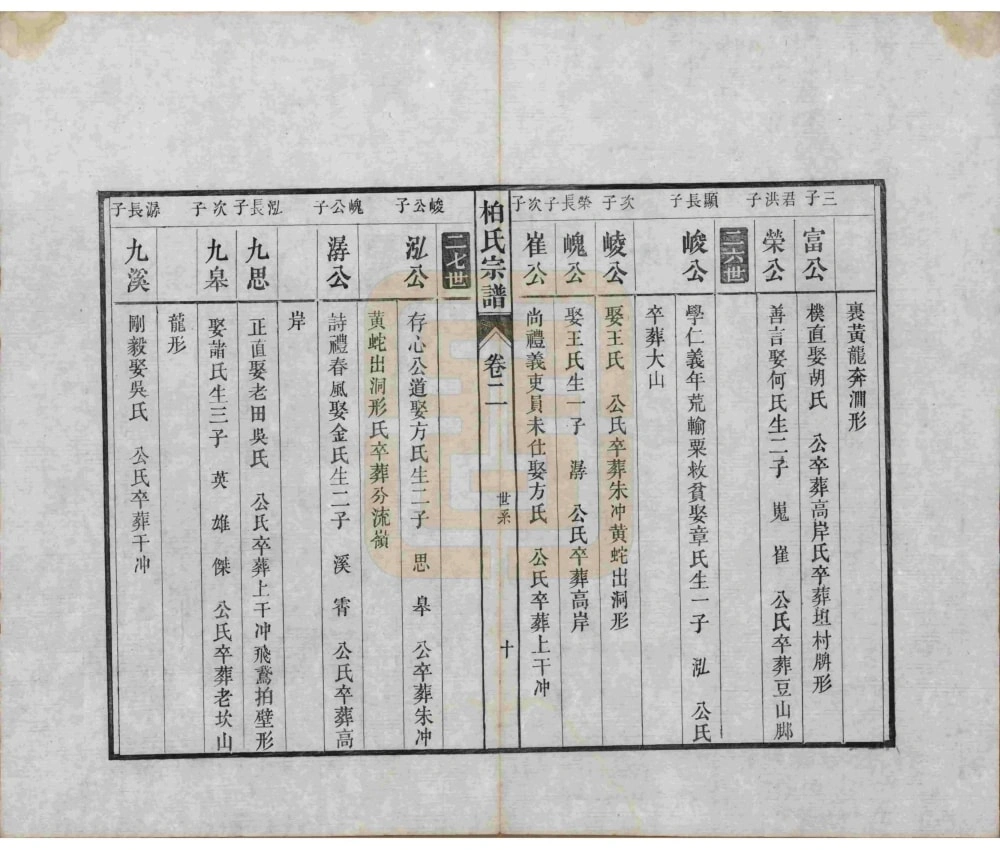 裏黃龍奔澗形
三子
富公
樸直娶胡氏　公卒葬高岸氏卒葬塸村牌形
君洪子
榮公
善言娶何氏生二子　嵬　崔　公氏卒葬豆山脚
二六世
顯長子
峻公
學仁義年荒輸粟救貧娶章氏生一子　泓　公氏
卒葬大山
次子
崚公
娶王氏　公氏卒葬朱冲黃蛇出洞形
榮長子
嵬公
娶王氏生一子　潺　公氏卒葬高岸
次子
崔公
尚禮義吏員未仕娶方氏　公氏卒葬上干冲
柏氏宗譜
卷二
世系
十
二七世
峻公子
泓公
存心公道娶方氏生二子　思　皋　公卒葬朱冲
黃蛇出洞形氏卒葬分流嶺
嵬公子
潺公
詩禮春風娶金氏生二子　溪　霄　公氏卒葬高
岸
泓長子
九思
正直娶老田吳氏　公氏卒葬上干冲飛鵞拍壁形
次子
九皋
娶諸氏生三子　英　雄　傑　公氏卒葬老坎山
龍形
潺長子
九溪
剛毅娶吳氏　公氏卒葬干冲